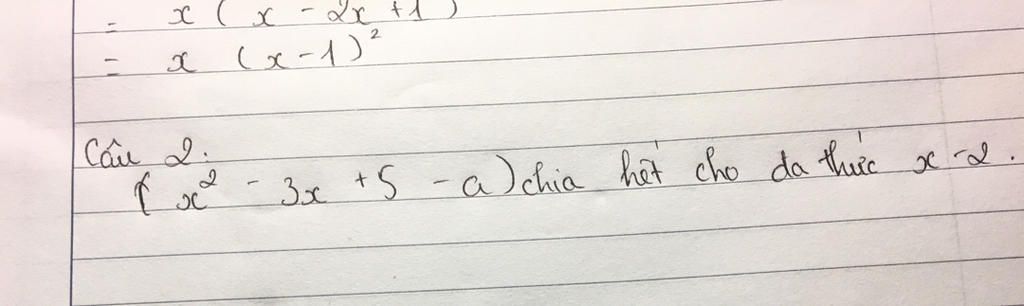 = x ( x - 2x + 1 )
= x (x-1)²
Câu 2.
( x² - 3x + 5 - a) chia hết cho đa thức x-2.